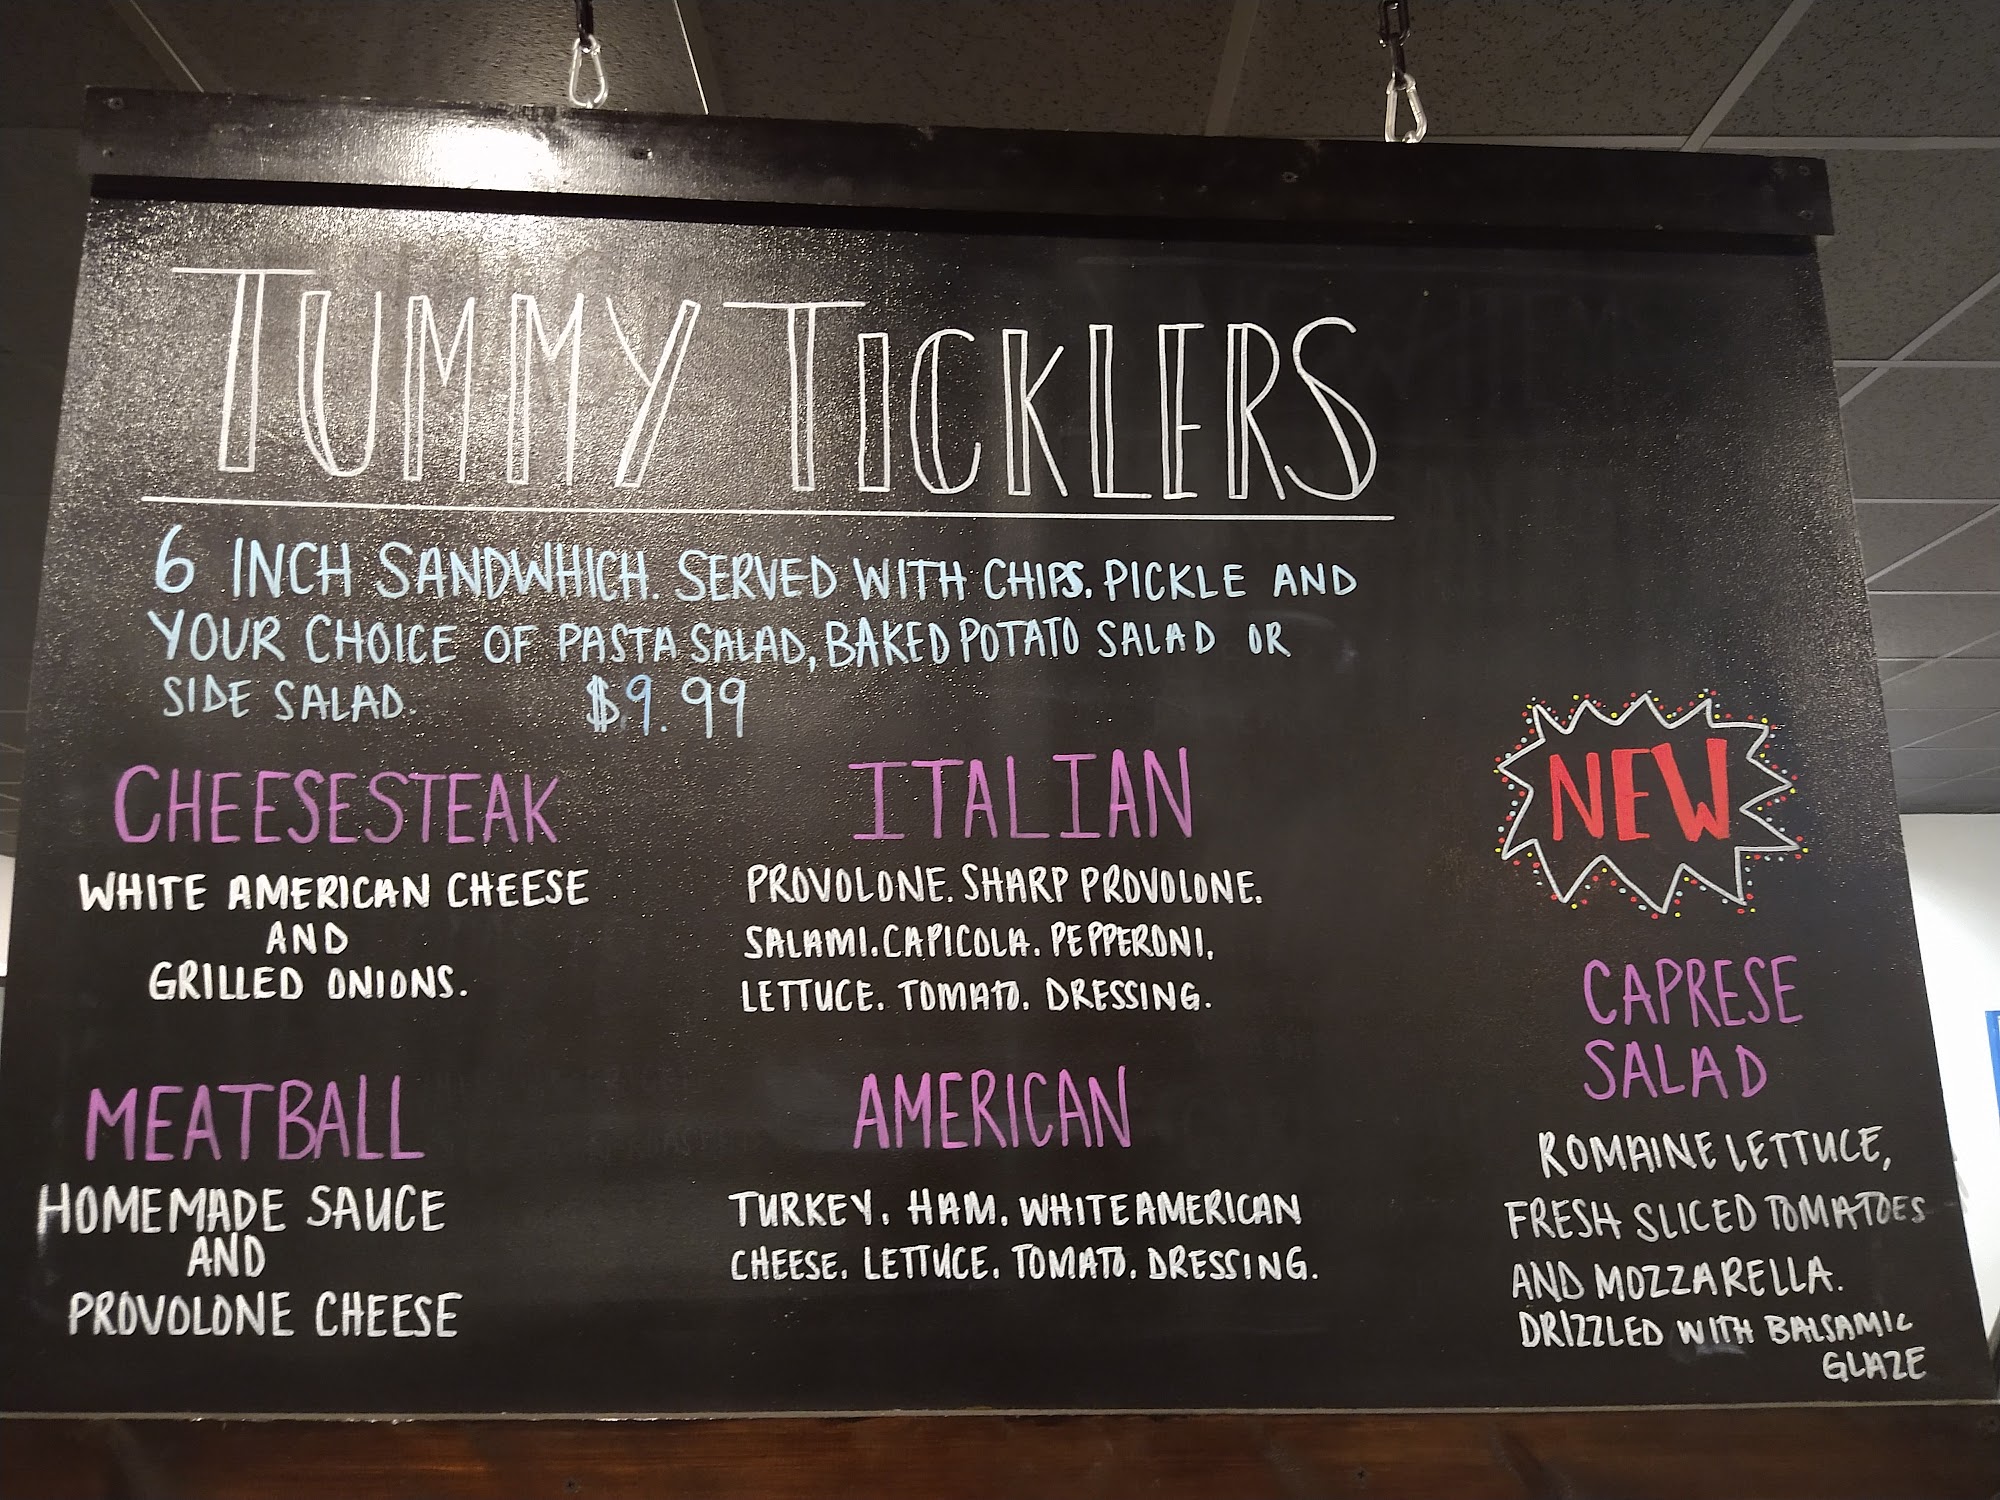 TUMMY TICKLERS
6 INCH SANDWHICH. SERVED WITH CHIPS. PICKLE AND
YOUR CHOICE OF PASTA SALAD, BAKED POTATO SALAD OR
SIDE SALAD. $9.99
CHEESESTEAK
WHITE AMERICAN CHEESE
AND
GRILLED ONIONS.
MEATBALL
HOMEMADE SAUCE
AND
PROVOLONE CHEESE
ITALIAN
PROVOLONE. SHARP PROVOLONE.
SALAMI. CAPICOLA. PEPPERONI.
LETTUCE. TOMATO. DRESSING.
AMERICAN
TURKEY. HAM. WHITE AMERICAN
CHEESE. LETTUCE. TOMATO. DRESSING.
NEW
CAPRESE
SALAD
ROMAINE LETTUCE,
FRESH SLICED TOMATOES
AND MOZZARELLA.
DRIZZLED WITH BALSAMIC
GLAZE